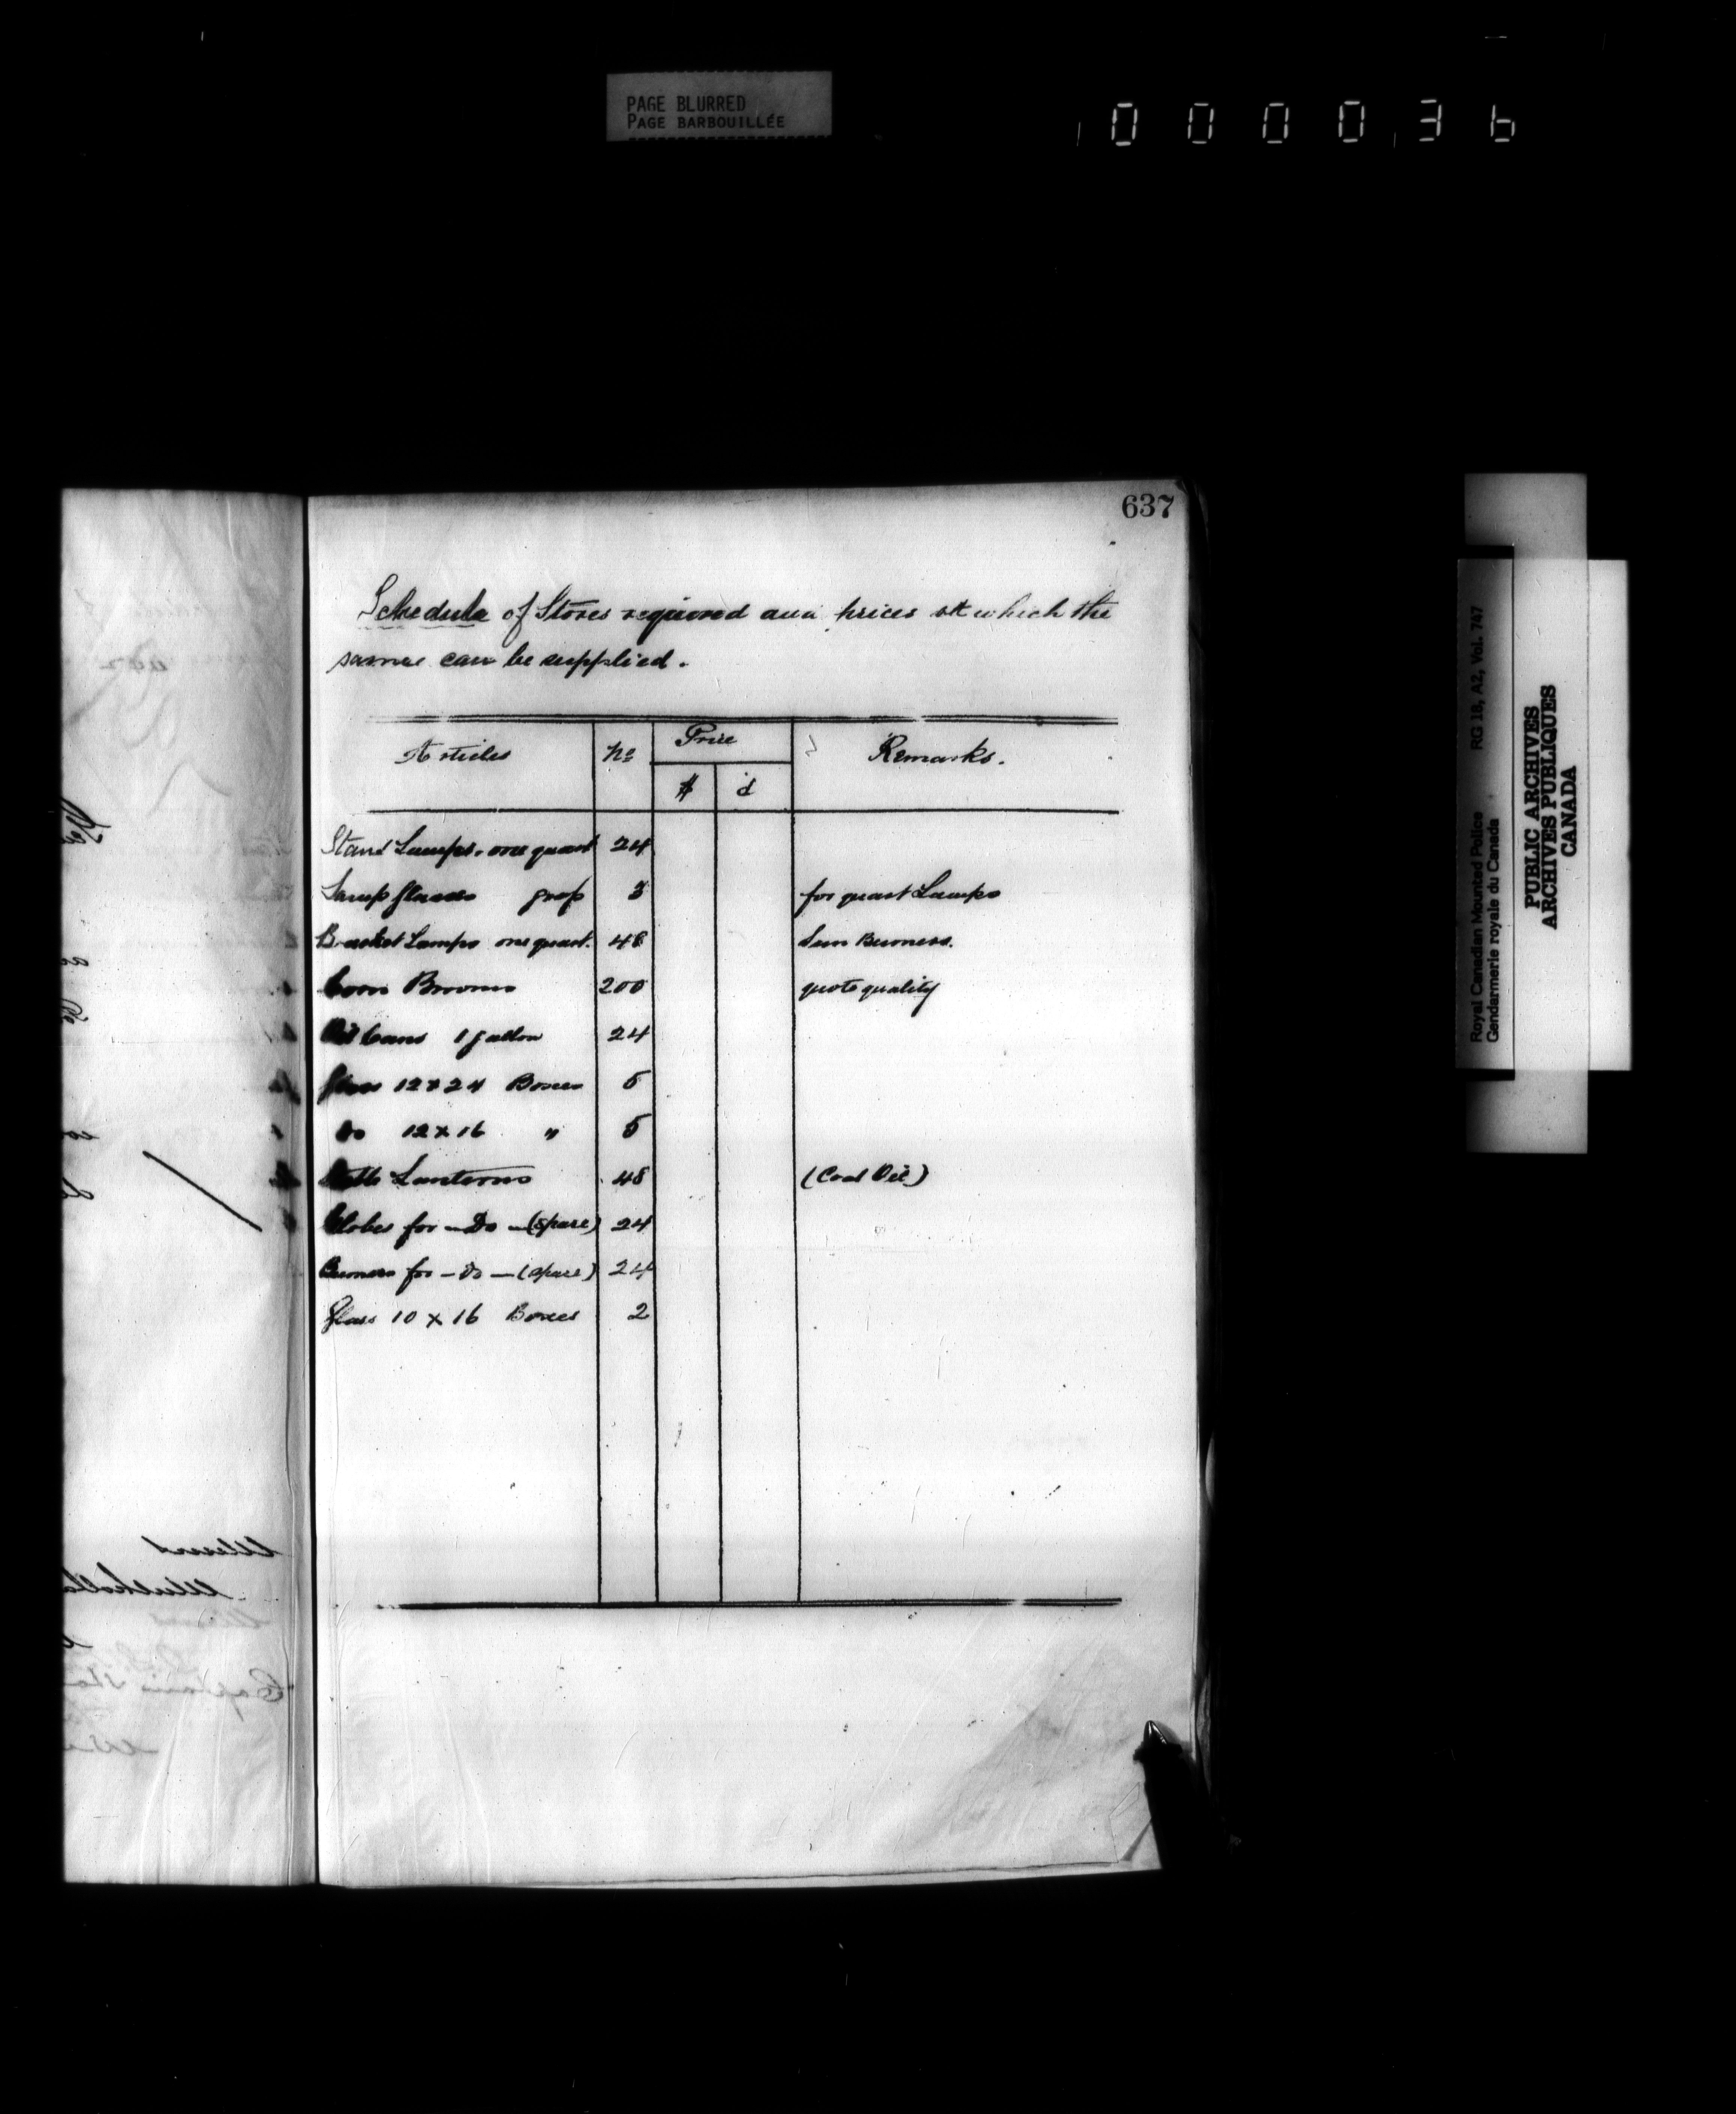 PAGE BLURRED
PAGE BARBOUILLÉE
000036
637
Schedule of Stores required and prices at which the
same can be supplied.
Articles No Price Remarks.
$ ¢
Stand Lamps. one quart 24
Lamp Glasses gross 3 for quart Lamps
Bracket Lamps one quart. 48 Sun Burners.
Corn Brooms 200 quote quality
Oil Cans 1 gallon 24
Glass 12 x 24 Boxes 5
Do 12 x 16 " 5
Lanterns 48 (Coal Oil)
Globes for - Do - (spare) 24
Burners for - do - (spare) 24
Glass 10 x 16 Boxes 2
Royal Canadian Mounted Police RG 18, A2, Vol. 747
Gendarmerie royale du Canada
PUBLIC ARCHIVES
ARCHIVES PUBLIQUES
CANADA